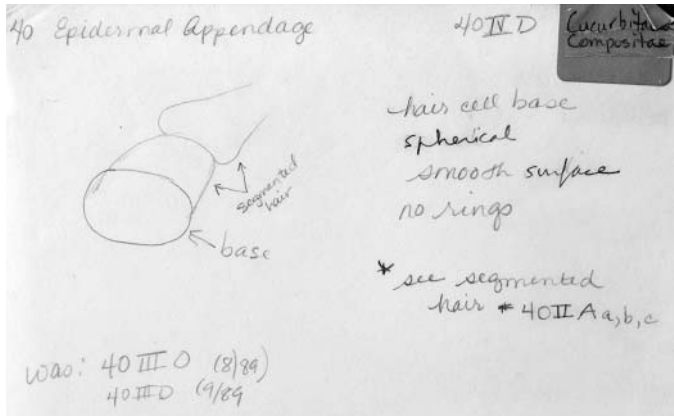 40 Epidermal Appendage
40 IV D
Cucurbitaceae
Compositae
hair cell base
spherical
smooth surface
no rings
segmented
hair
base
* see segmented
hair * 40 II A a, b, c
was: 40 III O (8/89)
40 III D (9/89